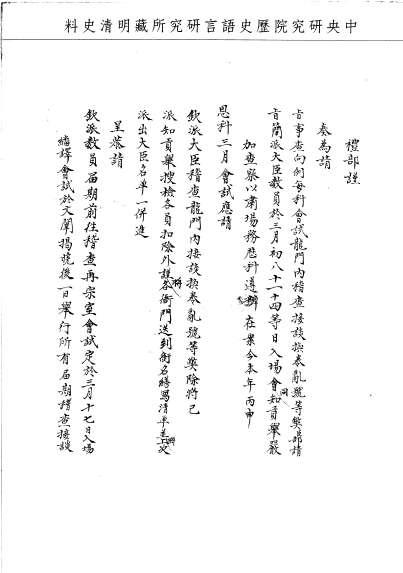 中央研究院歷史語言研究所藏明清史料
禮部謹
奏為請
旨事查向例每科會試龍門內稽查接談換卷亂號等弊都請
旨簡派大臣數員於三月初八十一十四等日入場會同知貢舉嚴
加查察以肅場務歷科遵辦在案今本年丙申
恩科三月會試應請
欽派大臣稽查龍門內接談換卷亂號等弊除將已
派知貢舉搜檢各員扣除外謹將各衙門送到銜名繕寫清單並
派出大臣名單一併進
呈恭請
欽派數員屆期前往稽查再宗室會試定於三月十七日入場
繙譯會試於文闈揭曉後一日舉行所有屆期稽查接談